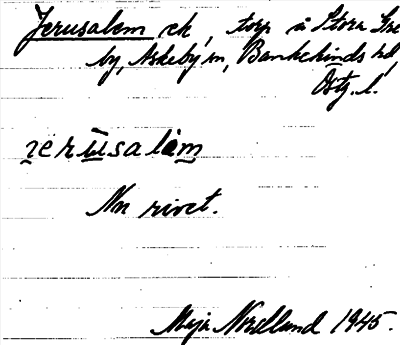 Jerusalem ek, torp å Stora Gre
by, Askeby sn, Bankekinds hd,
Östg. l.
jerusaläm
Nu rivet.
Maja Norelund 1945.